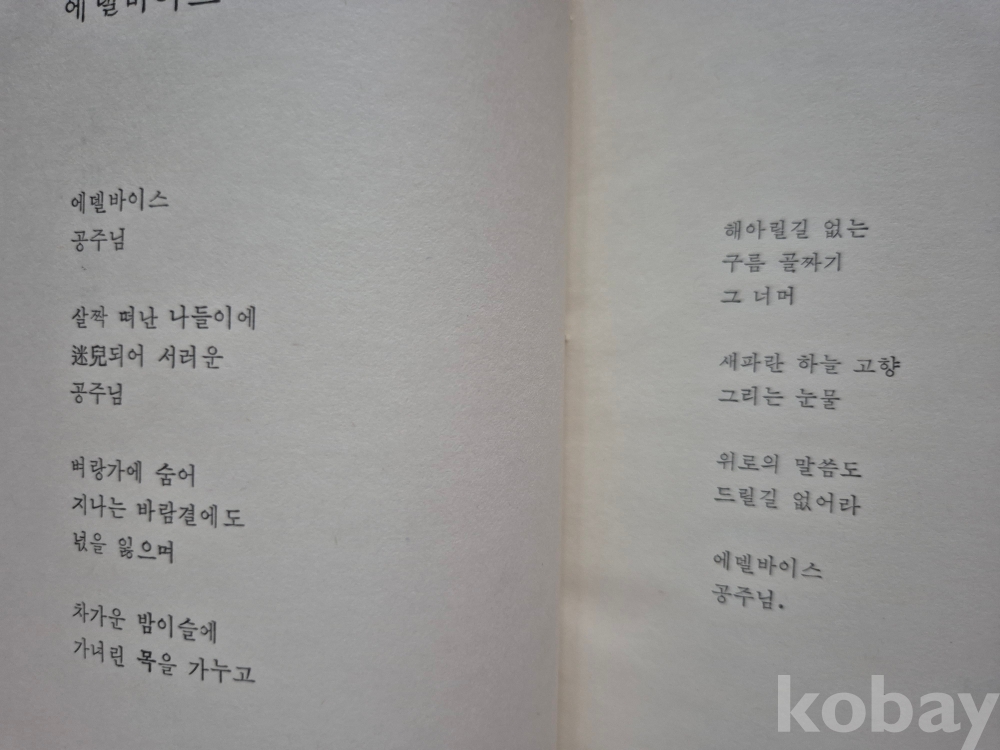 에델바이스
에델바이스
공주님
살짝 떠난 나들이에
迷兒되어 서러운
공주님
벼랑가에 숨어
지나는 바람결에도
넋을 잃으며
차가운 밤이슬에
가녀린 목을 가누고
해아릴길 없는
구름 골짜기
그 너머
새파란 하늘 고향
그리는 눈물
위로의 말씀도
드릴길 없어라
에델바이스
공주님.
kobay